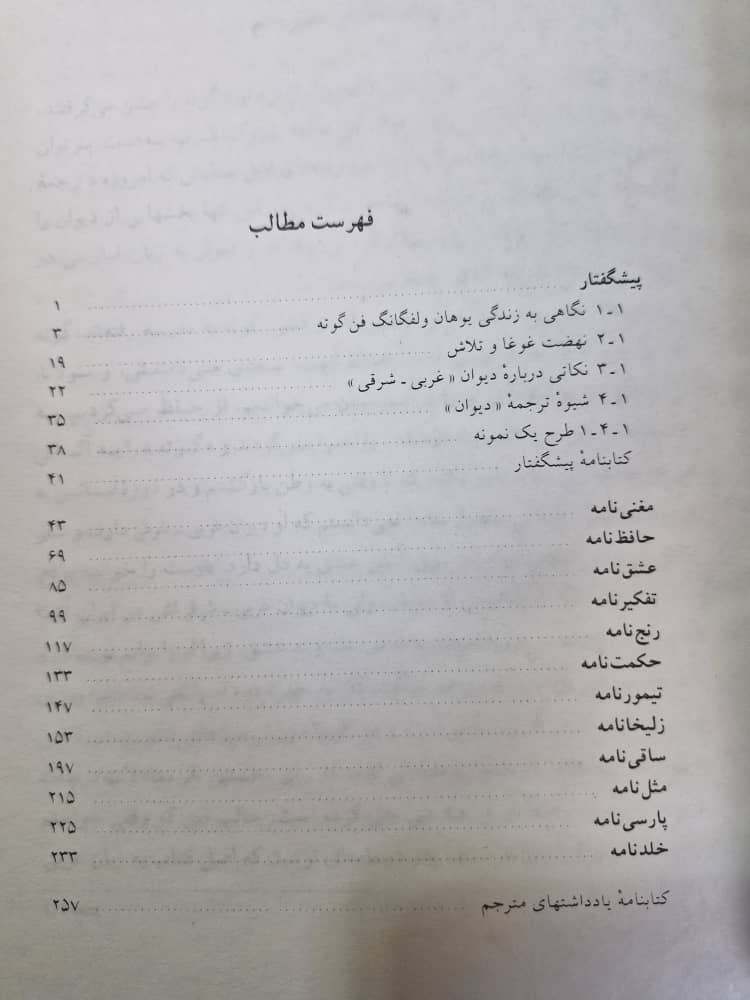 فهرست مطالب
پیشگفتار ۱
۱ـ۱ نگاهی به زندگی یوهان ولفگانگ فن گوته ۳
۱ـ۲ نهضت غوغا و تلاش ۱۹
۱ـ۳ نکاتی دربارهٔ دیوان «غربی ـ شرقی» ۲۲
۱ـ۴ شیوهٔ ترجمهٔ «دیوان» ۳۵
۱ـ۴ـ۱ طرح یک نمونه ۳۸
کتابنامهٔ پیشگفتار ۴۱
مغنی‌نامه ۴۳
حافظ‌نامه ۶۹
عشق‌نامه ۸۵
تفکیرنامه ۹۹
رنج‌نامه ۱۱۷
حکمت‌نامه ۱۳۳
تیمورنامه ۱۴۷
زلیخانامه ۱۵۳
ساقی‌نامه ۱۹۷
مثل‌نامه ۲۱۵
پارسی‌نامه ۲۲۵
خلدنامه ۲۳۳
کتابنامهٔ یادداشتهای مترجم ۲۵۷